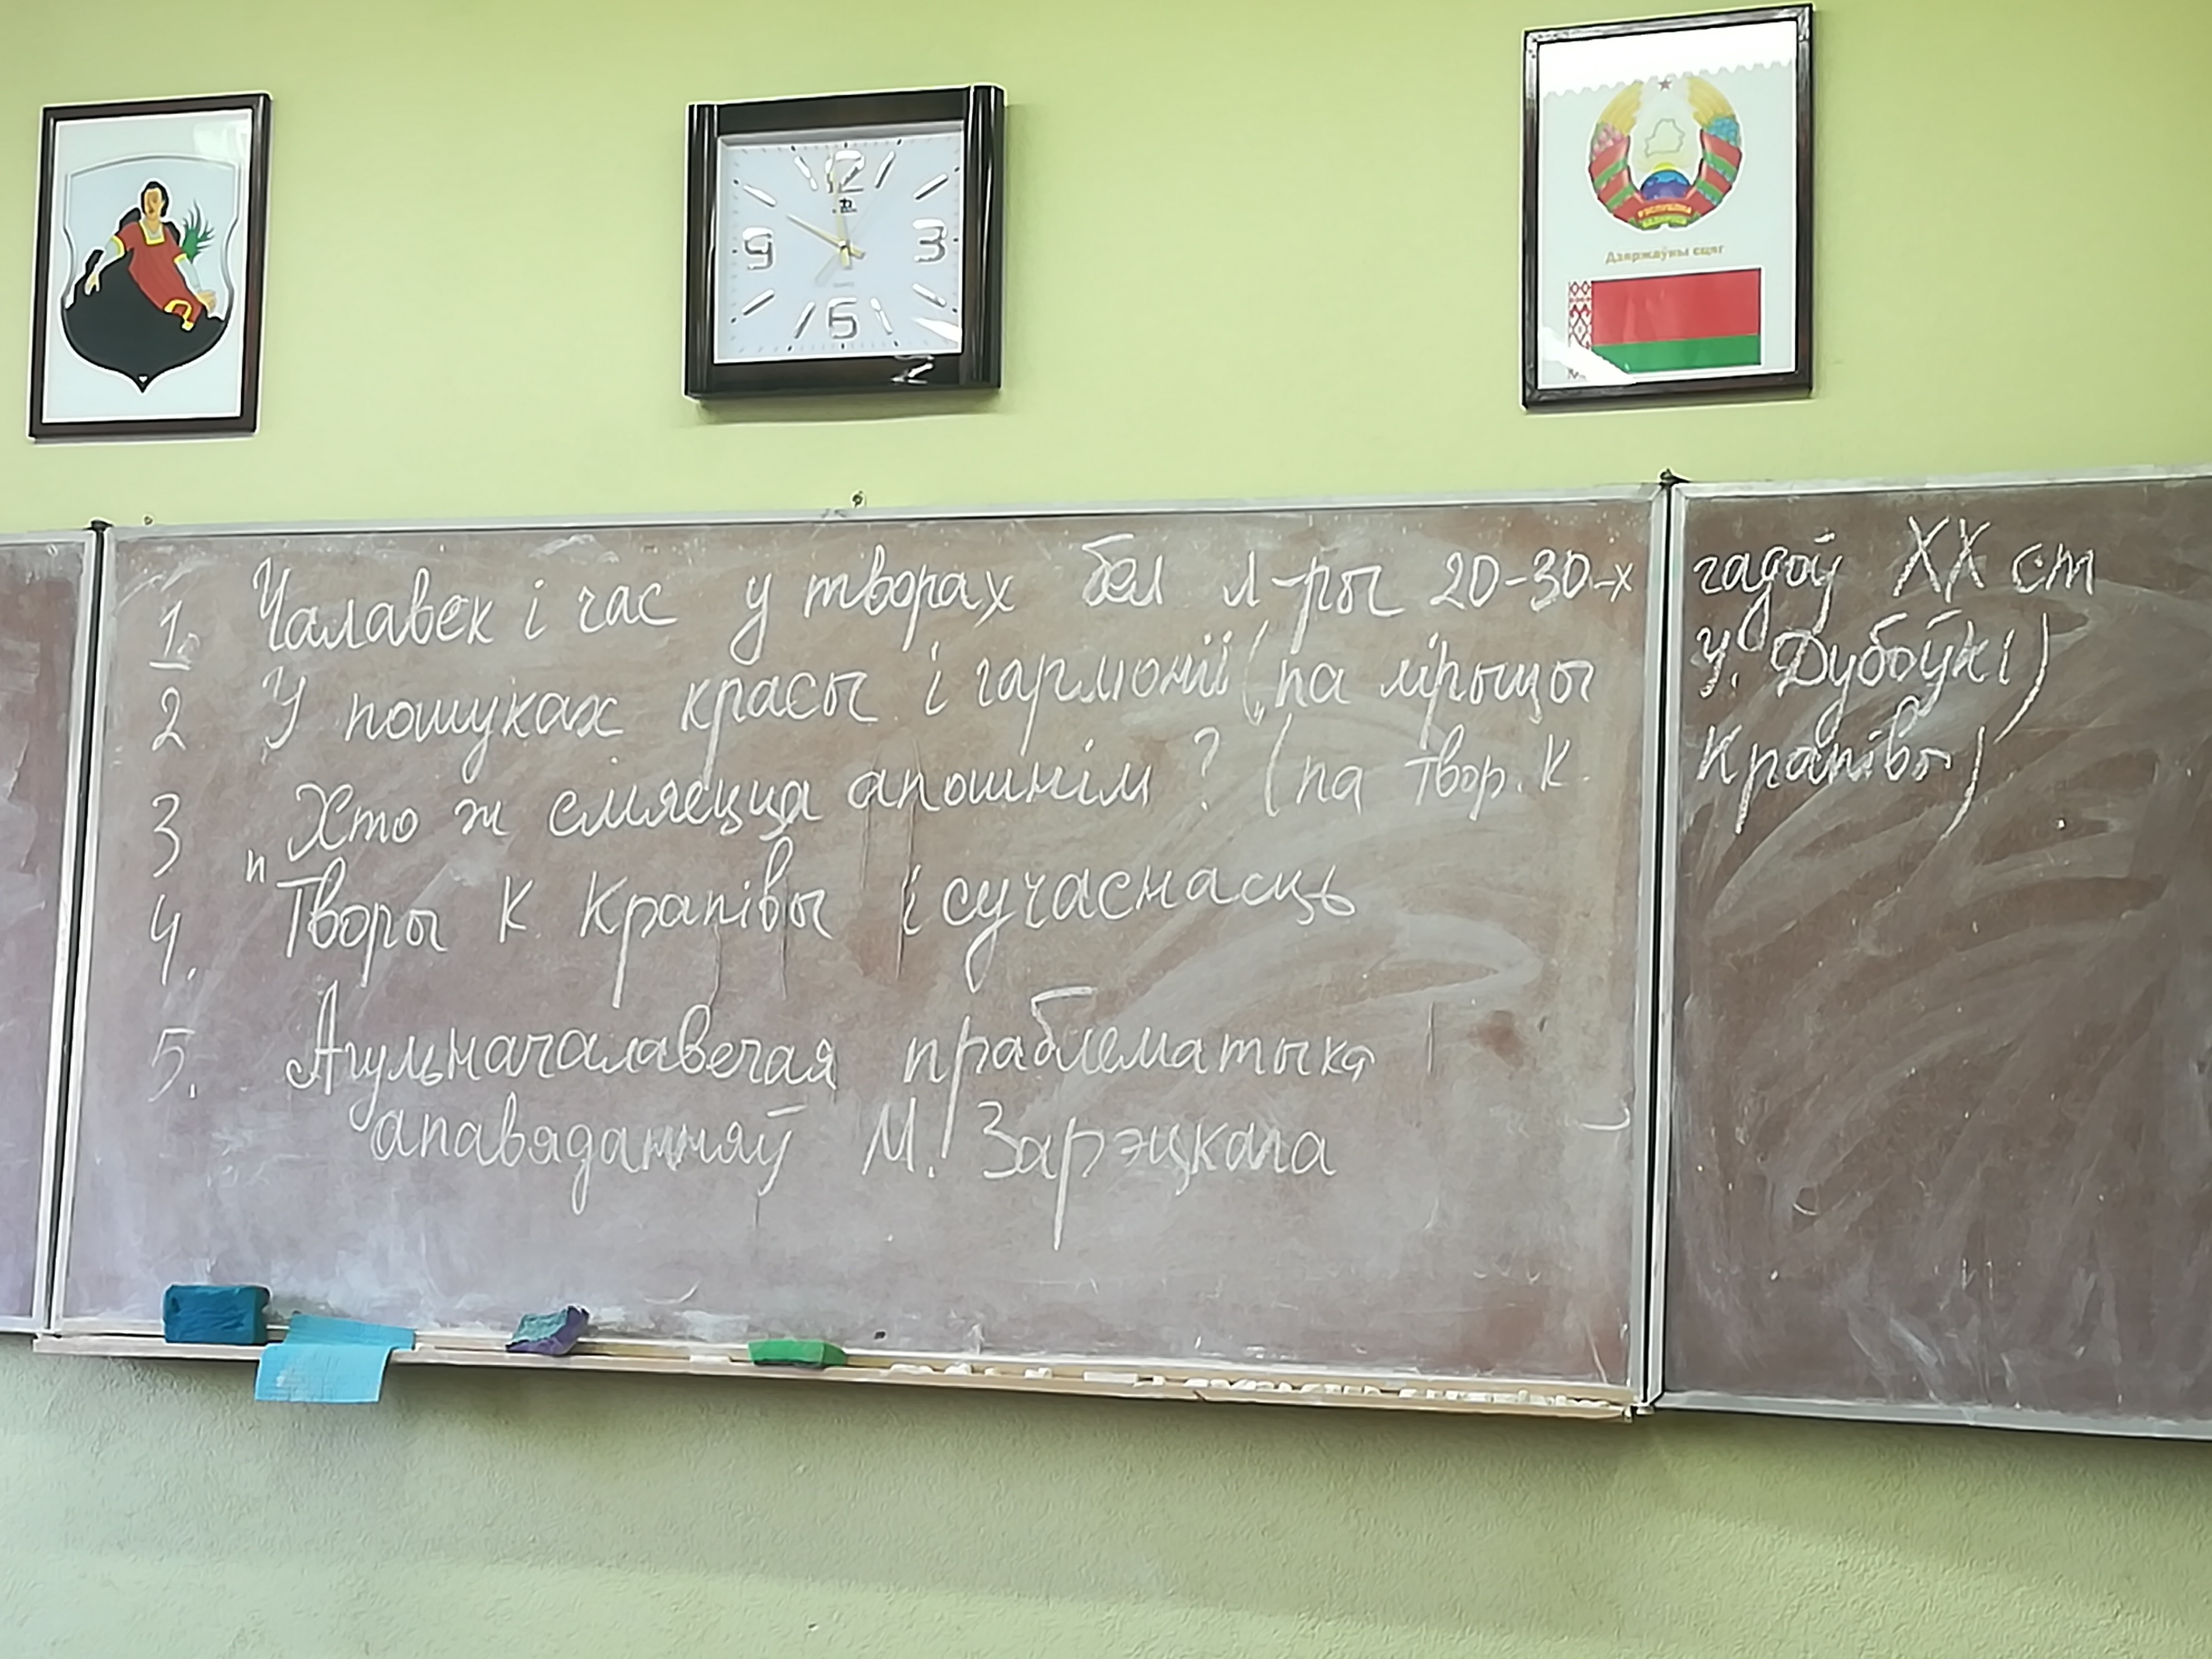 12
9
3
6
QUARTZ
РЭСПУБЛІКА
БЕЛАРУСЬ
Дзяржаўны сцяг
1. Чалавек і час у творах бел л-ры 20-30-х гадоў XX ст
2 У пошуках красы і гармоніі (па лірыцы У. Дубоўкі)
3 Хто ж смяецца апошнім? (па твор. К. Крапівы)
4. "Творы К Крапівы і сучаснасць
5. Агульначалавечая праблематыка
апавяданняў М. Зарэцкага